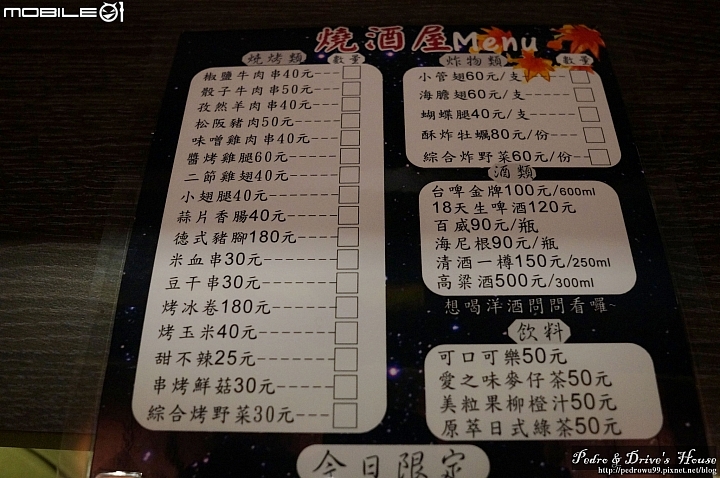 MOBILE01
燒酒屋Menu
燒烤類 數量
椒鹽牛肉串40元---
骰子牛肉串50元----
孜然羊肉串40元----
松阪豬肉50元-----
味噌雞肉串40元---
醬烤雞腿60元-----
二節雞翅40元-----
小翅腿40元-------
蒜片香腸40元-----
德式豬腳180元----
米血串30元-------
豆干串30元-------
烤冰卷180元------
烤玉米40元-------
甜不辣25元-------
串烤鮮菇30元-----
綜合烤野菜30元---
炸物類 數量
小管翅60元/支----
海膽翅60元/支----
蝴蝶腿40元/支----
酥炸牡蠣80元/份---
綜合炸野菜60元/份--
酒類
台啤金牌100元/600ml
18天生啤酒120元
百威90元/瓶
海尼根90元/瓶
清酒一樽150元/250ml
高粱酒500元/300ml
想喝洋酒問問看囉~
飲料
可口可樂50元
愛之味麥仔茶50元
美粒果柳橙汁50元
原萃日式綠茶50元
今日限定
Pedro & Drive's House
http://pedrowu99.pixnet.net/blog